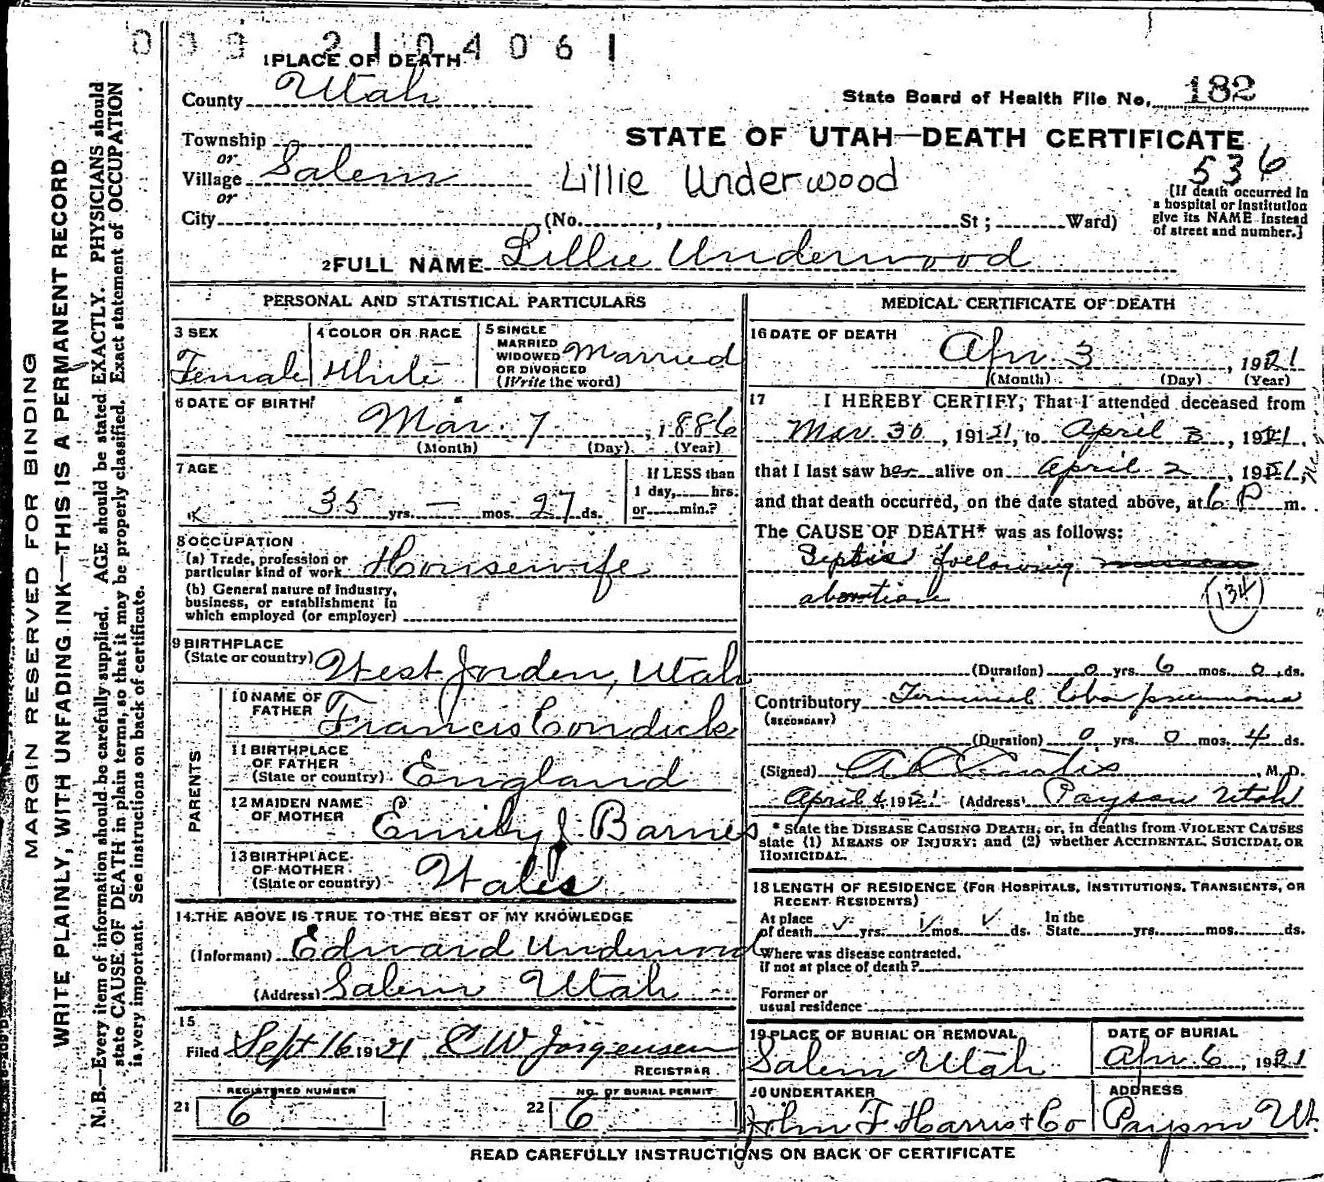 009 2104061
1 PLACE OF DEATH
County Utah
State Board of Health File No. 182
Township
or
Village Salem
or
City (No. , St ; Ward)
STATE OF UTAH—DEATH CERTIFICATE
536
Lillie Underwood
[If death occurred in
a hospital or institution
give its NAME instead
of street and number.]
2 FULL NAME Lillie Underwood
PERSONAL AND STATISTICAL PARTICULARS
3 SEX
Female
4 COLOR OR RACE
White
5 SINGLE
MARRIED
WIDOWED
OR DIVORCED
(Write the word)
Married
6 DATE OF BIRTH
Mar. 7, 1886
(Month) (Day) (Year)
7 AGE
35 yrs. — mos. 27 ds.
If LESS than
1 day, hrs.
or min.?
8 OCCUPATION
(a) Trade, profession or
particular kind of work Housewife
(b) General nature of industry,
business, or establishment in
which employed (or employer)
9 BIRTHPLACE
(State or country) West Jorden, Utah
PARENTS
10 NAME OF
FATHER Francis Condick
11 BIRTHPLACE
OF FATHER
(State or country) England
12 MAIDEN NAME
OF MOTHER Emily J Barnes
13 BIRTHPLACE
OF MOTHER
(State or country) Wales
14 THE ABOVE IS TRUE TO THE BEST OF MY KNOWLEDGE
(Informant) Edward Underwood
(Address) Salem Utah
15
Filed Sept 16 1921 C W Jorgensen
REGISTRAR
REGISTERED NUMBER
21 6
NO. OF BURIAL PERMIT
22 6
MEDICAL CERTIFICATE OF DEATH
16 DATE OF DEATH
Apr. 3, 1921
(Month) (Day) (Year)
17 I HEREBY CERTIFY, That I attended deceased from
Mar. 30, 1921, to April 3, 1921,
that I last saw her alive on April 2, 1921,
and that death occurred, on the date stated above, at 6 P m.
The CAUSE OF DEATH* was as follows:
Sepsis following
abortion
(134)
(Duration) 0 yrs. 6 mos. 0 ds.
Contributory Terminal lobar pneumonia
(SECONDARY)
(Duration) 0 yrs. 0 mos. 4 ds.
(Signed) Curtis, M.D.
April 4, 1921 (Address) Payson Utah
* State the DISEASE CAUSING DEATH, or, in deaths from VIOLENT CAUSES
state (1) MEANS OF INJURY; and (2) whether ACCIDENTAL, SUICIDAL OR
HOMICIDAL.
18 LENGTH OF RESIDENCE (FOR HOSPITALS, INSTITUTIONS, TRANSIENTS, OR
RECENT RESIDENTS)
At place
of death yrs. mos. ds.
In the
State yrs. mos. ds.
Where was disease contracted,
if not at place of death?
Former or
usual residence
19 PLACE OF BURIAL OR REMOVAL
Salem Utah
DATE OF BURIAL
Apr. 6, 1921
20 UNDERTAKER
John F. Harris + Co
ADDRESS
Payson Ut.
READ CAREFULLY INSTRUCTIONS ON BACK OF CERTIFICATE
MARGIN RESERVED FOR BINDING
WRITE PLAINLY, WITH UNFADING INK—THIS IS A PERMANENT RECORD
N. B.—Every item of information should be carefully supplied. AGE should be stated EXACTLY. PHYSICIANS should
state CAUSE OF DEATH in plain terms, so that it may be properly classified. Exact statement of OCCUPATION
is very important. See instructions on back of certificate.